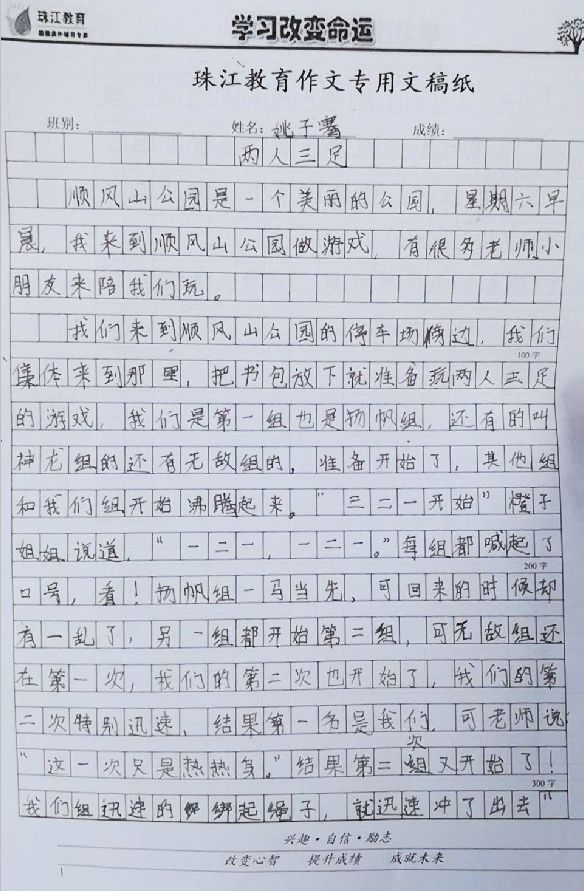 珠江教育
学习改变命运
珠江教育作文专用文稿纸
班别: 姓名: 姚子 成绩:
两人三足
顺风山公园是一个美丽的公园，星期六早
晨，我来到顺风山公园做游戏，有很多老师小
朋友来陪我们玩。
我们来到顺风山公园的停车场旁边，我们
100字
集体来到那里，把书包放下就准备玩两人三足
的游戏，我们是第一组也是扬帆组，还有的叫
神龙组的还有无敌组的，准备开始了，其他组
和我们组开始沸腾起来。“三二一开始”橙子
姐姐说道，“一二一，一二一。”每组都喊起了
200字
口号，看！扬帆组一马当先，可回来的时候却
有一乱了，另一组都开始第二组，可无敌组还
在第一次，我们的第二次也开始了，我们的第
二次特别迅速，结果第一名是我们，可老师说
次
“这一次只是热热身。”结果第二组又开始了！
300字
我们组迅速的绑起绳子，就迅速冲了出去”
兴趣·自信·励志
改变心智 提升成绩 成就未来
1